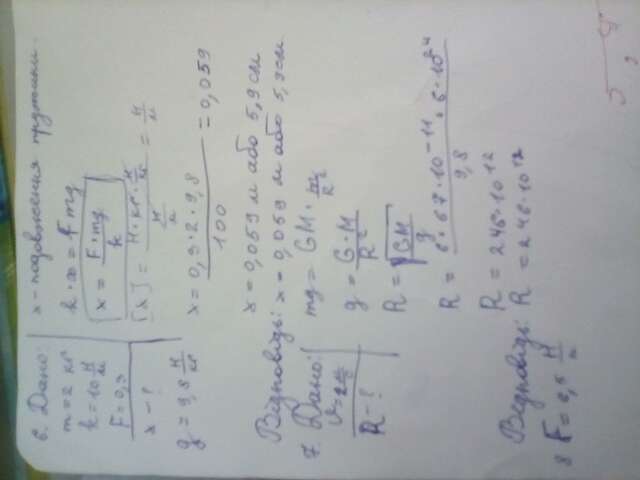 6. Дано:
m = 2 кг
k = 10 Н/м
F = 0,3
x - ?
g = 9,8 Н/кг
x - подовження пружини.
k · x = F mg
x = F · mg / k
[x] = Н · кг · Н/кг / Н/м = Н/м
x = 0,3 · 2 · 9,8 / 100 = 0,059
x = 0,059 м або 5,9 см
Відповідь: x = 0,059 м або 5,9 см
7. Дано:
R - ?
mg = GM · m/R²
g = G · M / R²
R = √GM / g
R = 6,67 · 10⁻¹¹ · 6 · 10²⁴ / 9,8
R = 246 · 10¹²
Відповідь: R = 246 · 10¹²
8